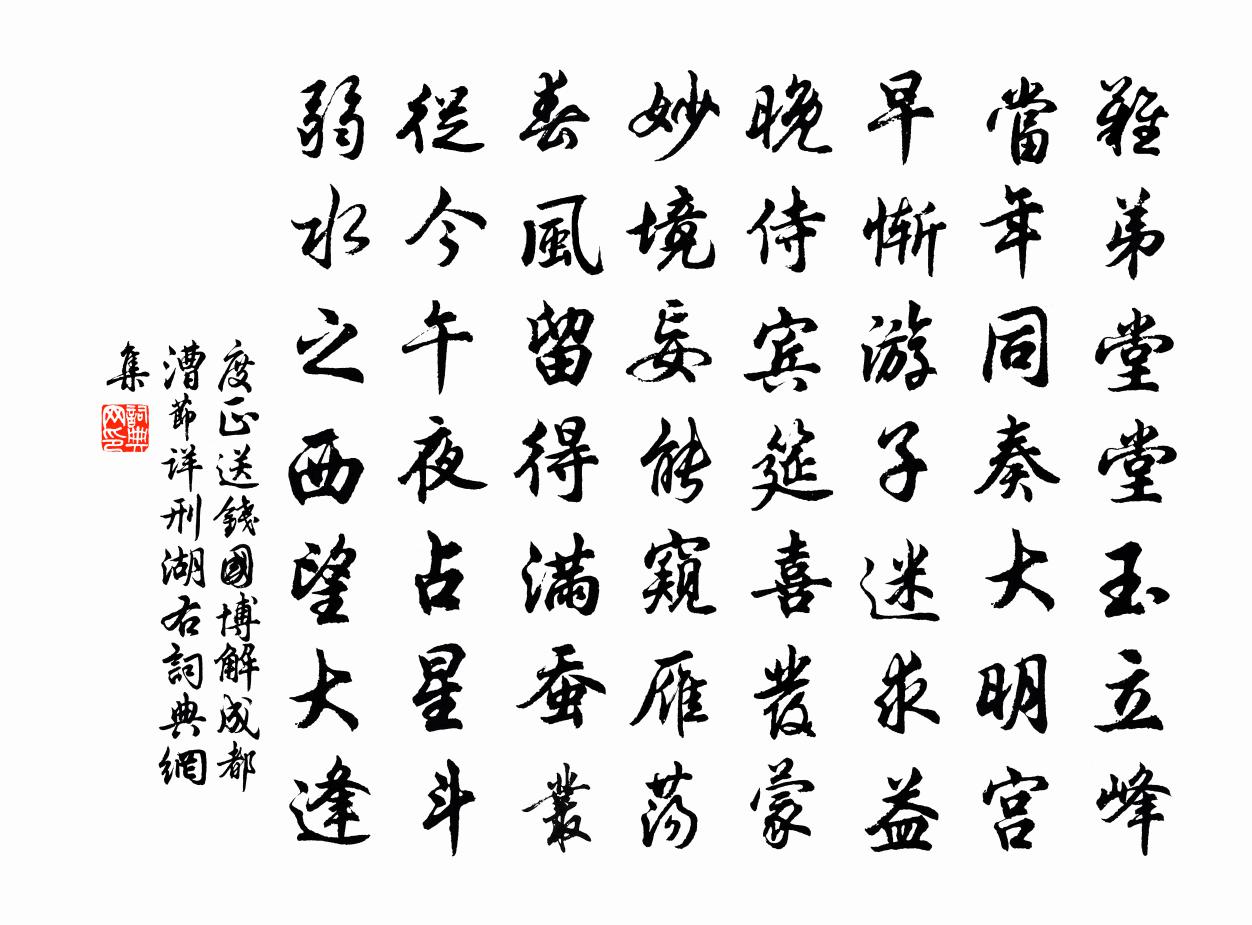 難弟堂堂玉立峰
當年同奏大明宮
早慚游子迷求益
晚侍宾筵喜發蒙
妙境妄能窺雁荡
春風留得滿蚕叢
從今午夜占星斗
弱水之西望大逢
度正送錢國博解成都
漕節详刑湖右詞典網
集
詞典网印